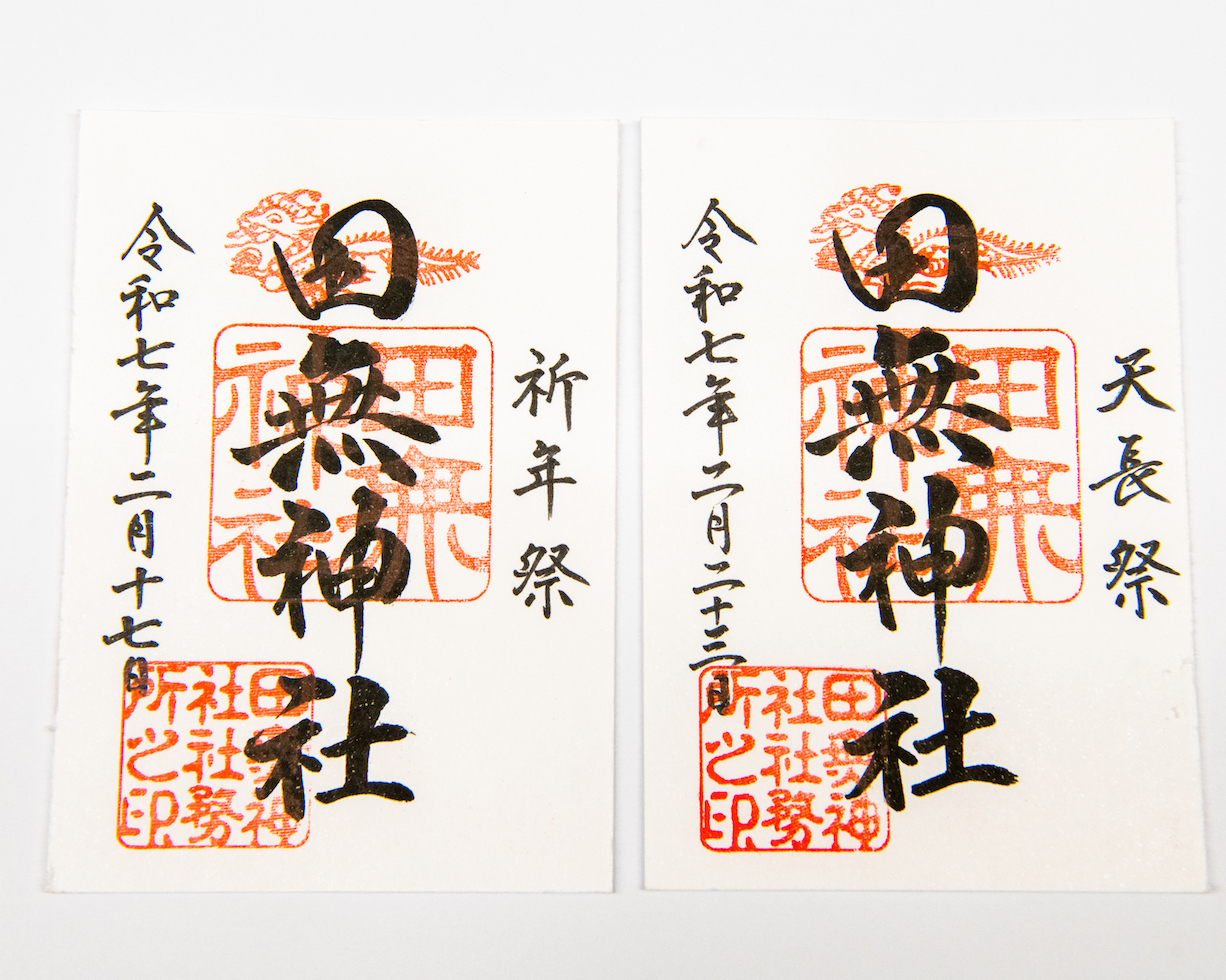 祈年祭
田無神社
令和七年二月十七日
田無神社
田無神社社務所之印
天長祭
田無神社
令和七年二月二十三日
田無神社
田無神社社務所之印